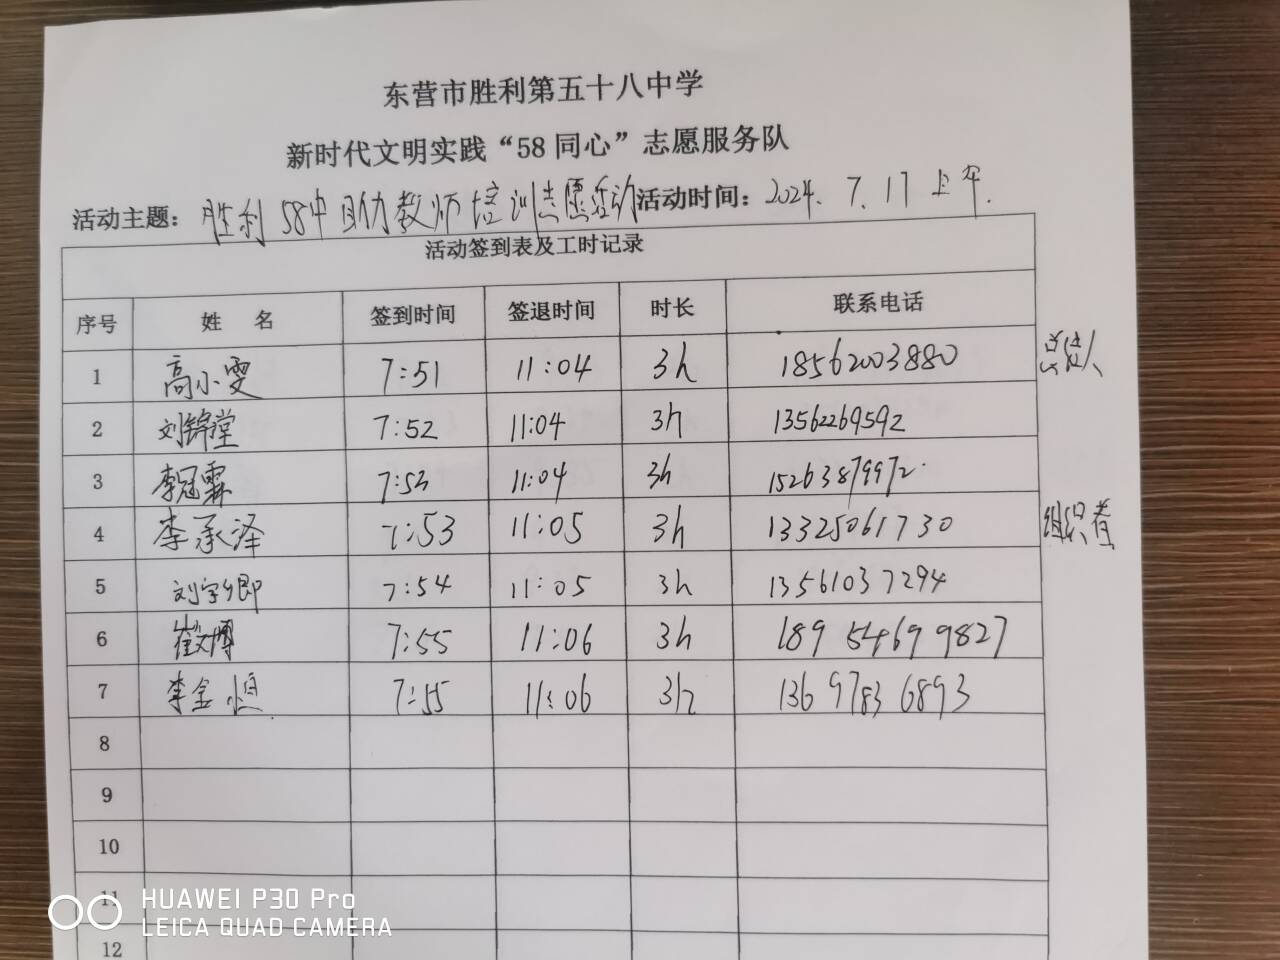 东营市胜利第五十八中学
新时代文明实践“58同心”志愿服务队
活动主题：胜利58中助教师培训志愿活动 活动时间：2024.7.17上午.
活动签到表及工时记录
序号 姓 名 签到时间 签退时间 时长 联系电话
1 高小雯 7:51 11:04 3h 18562003880 总结人
2 刘锦堂 7:52 11:04 3h 13562269592
3 李冠霖 7:53 11:04 3h 15263879972
4 李承泽 7:53 11:05 3h 13325061730 组织者
5 刘宇 7:54 11:05 3h 13561037294
6 崔文博 7:55 11:06 3h 189 5469 9827
7 李金恒 7:55 11:06 3h 136 9783 6893
8
9
10
11
12
HUAWEI P30 Pro
LEICA QUAD CAMERA